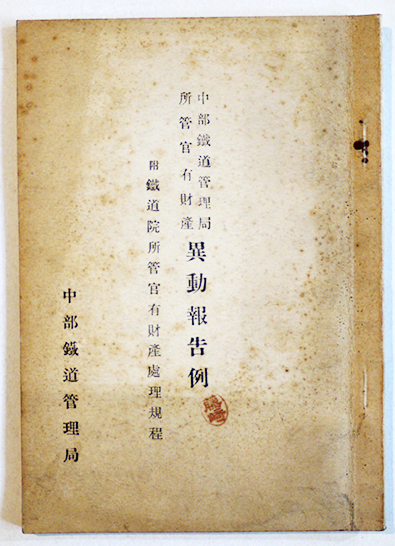 中部鐵道管理局
所管官有財產
異動報告例
附 鐵道院所管官有財產處理規程
中部鐵道管理局